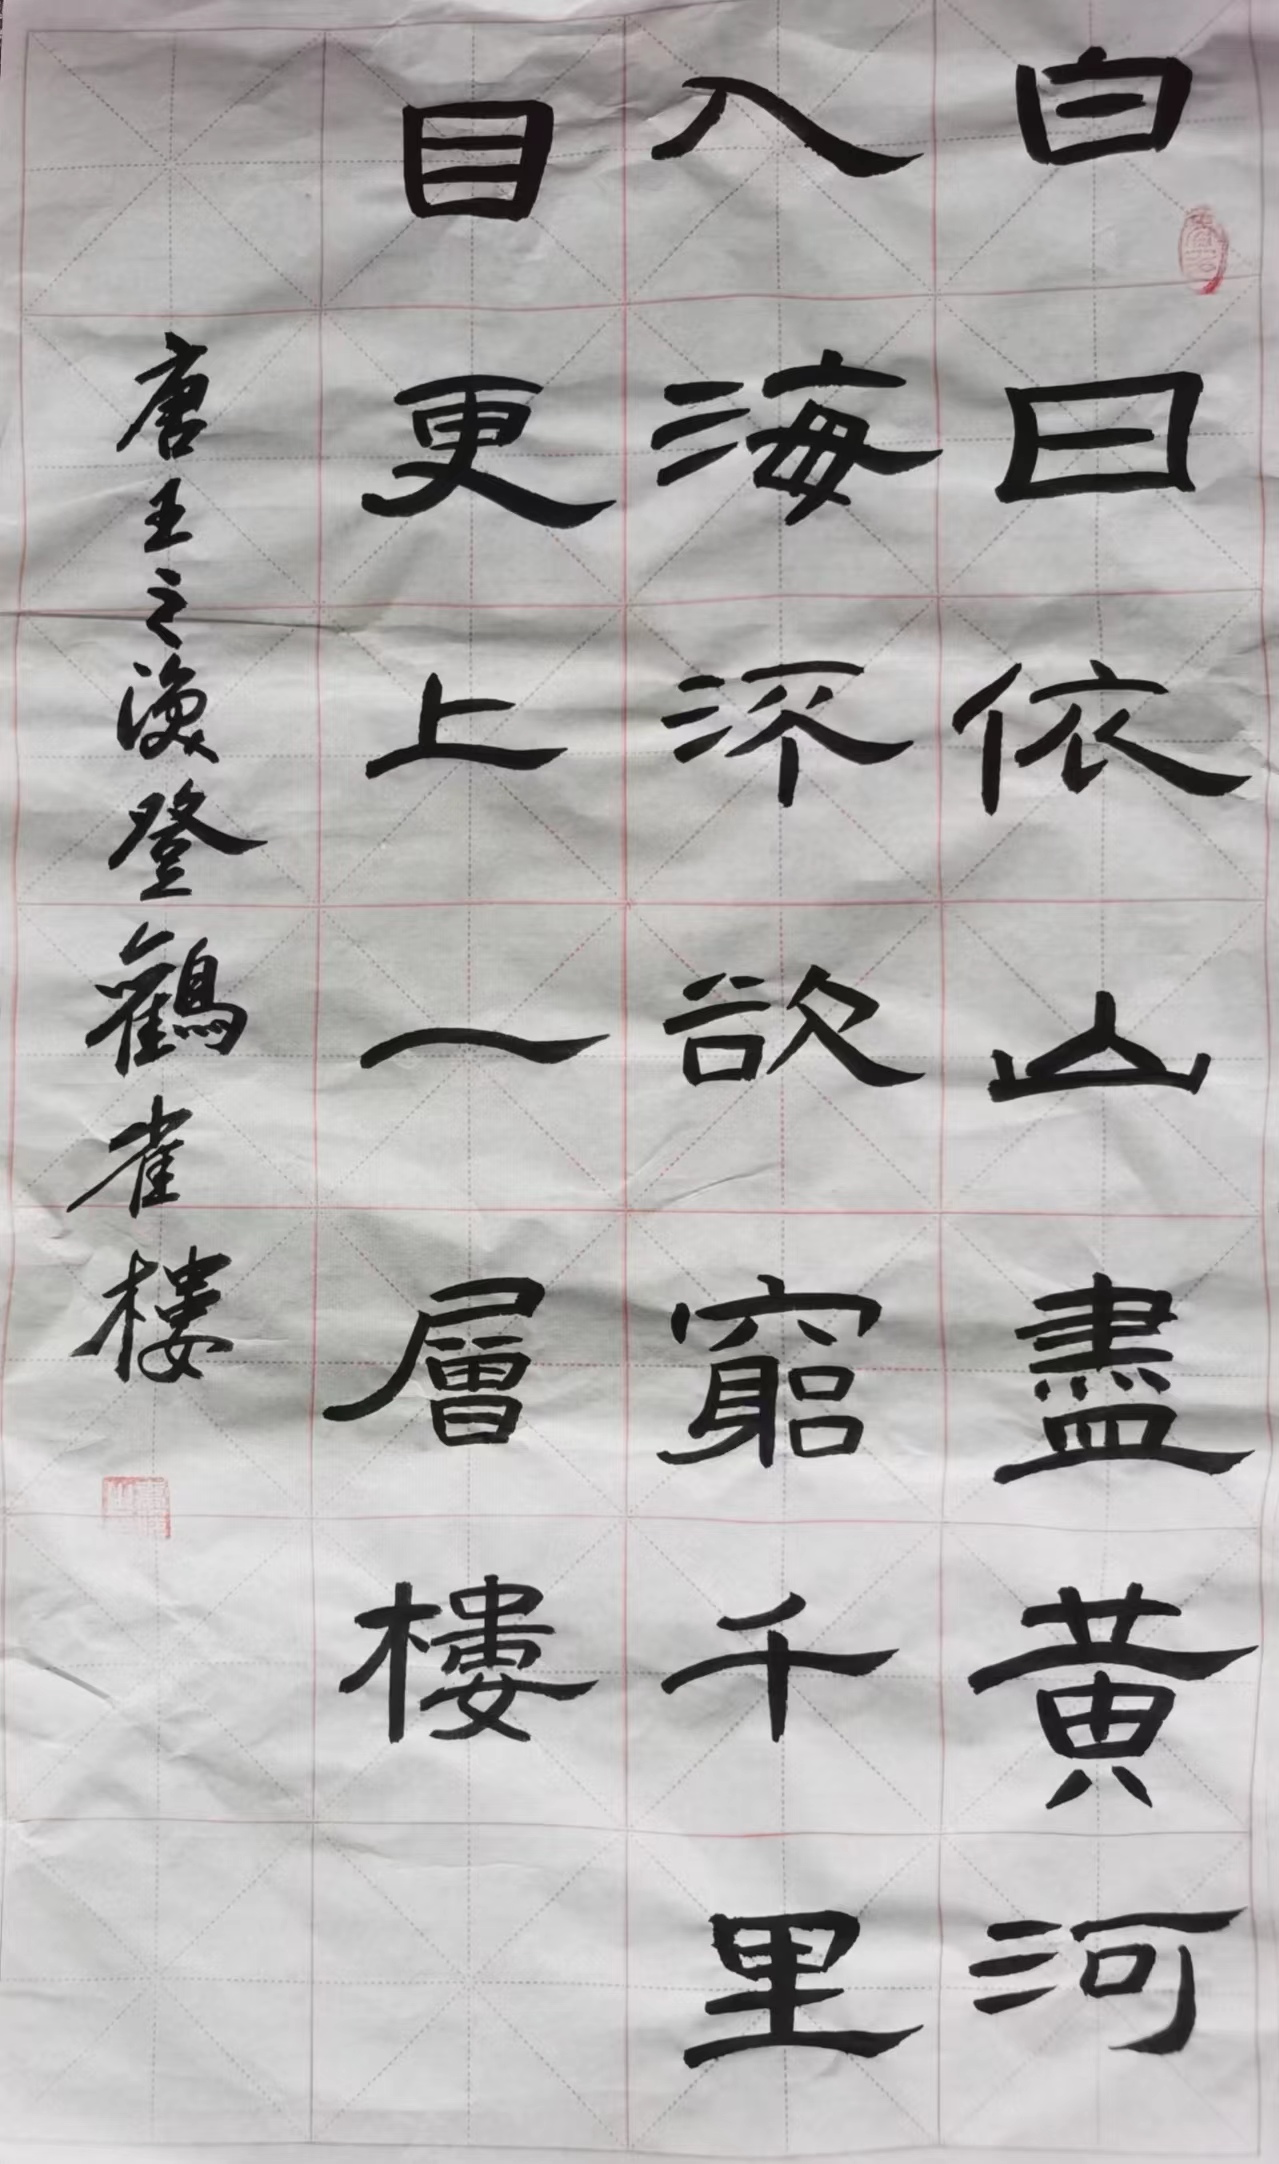 白日依山盡黄河
入海流欲窮千里
目更上一層樓
唐王之渙登鸛雀樓